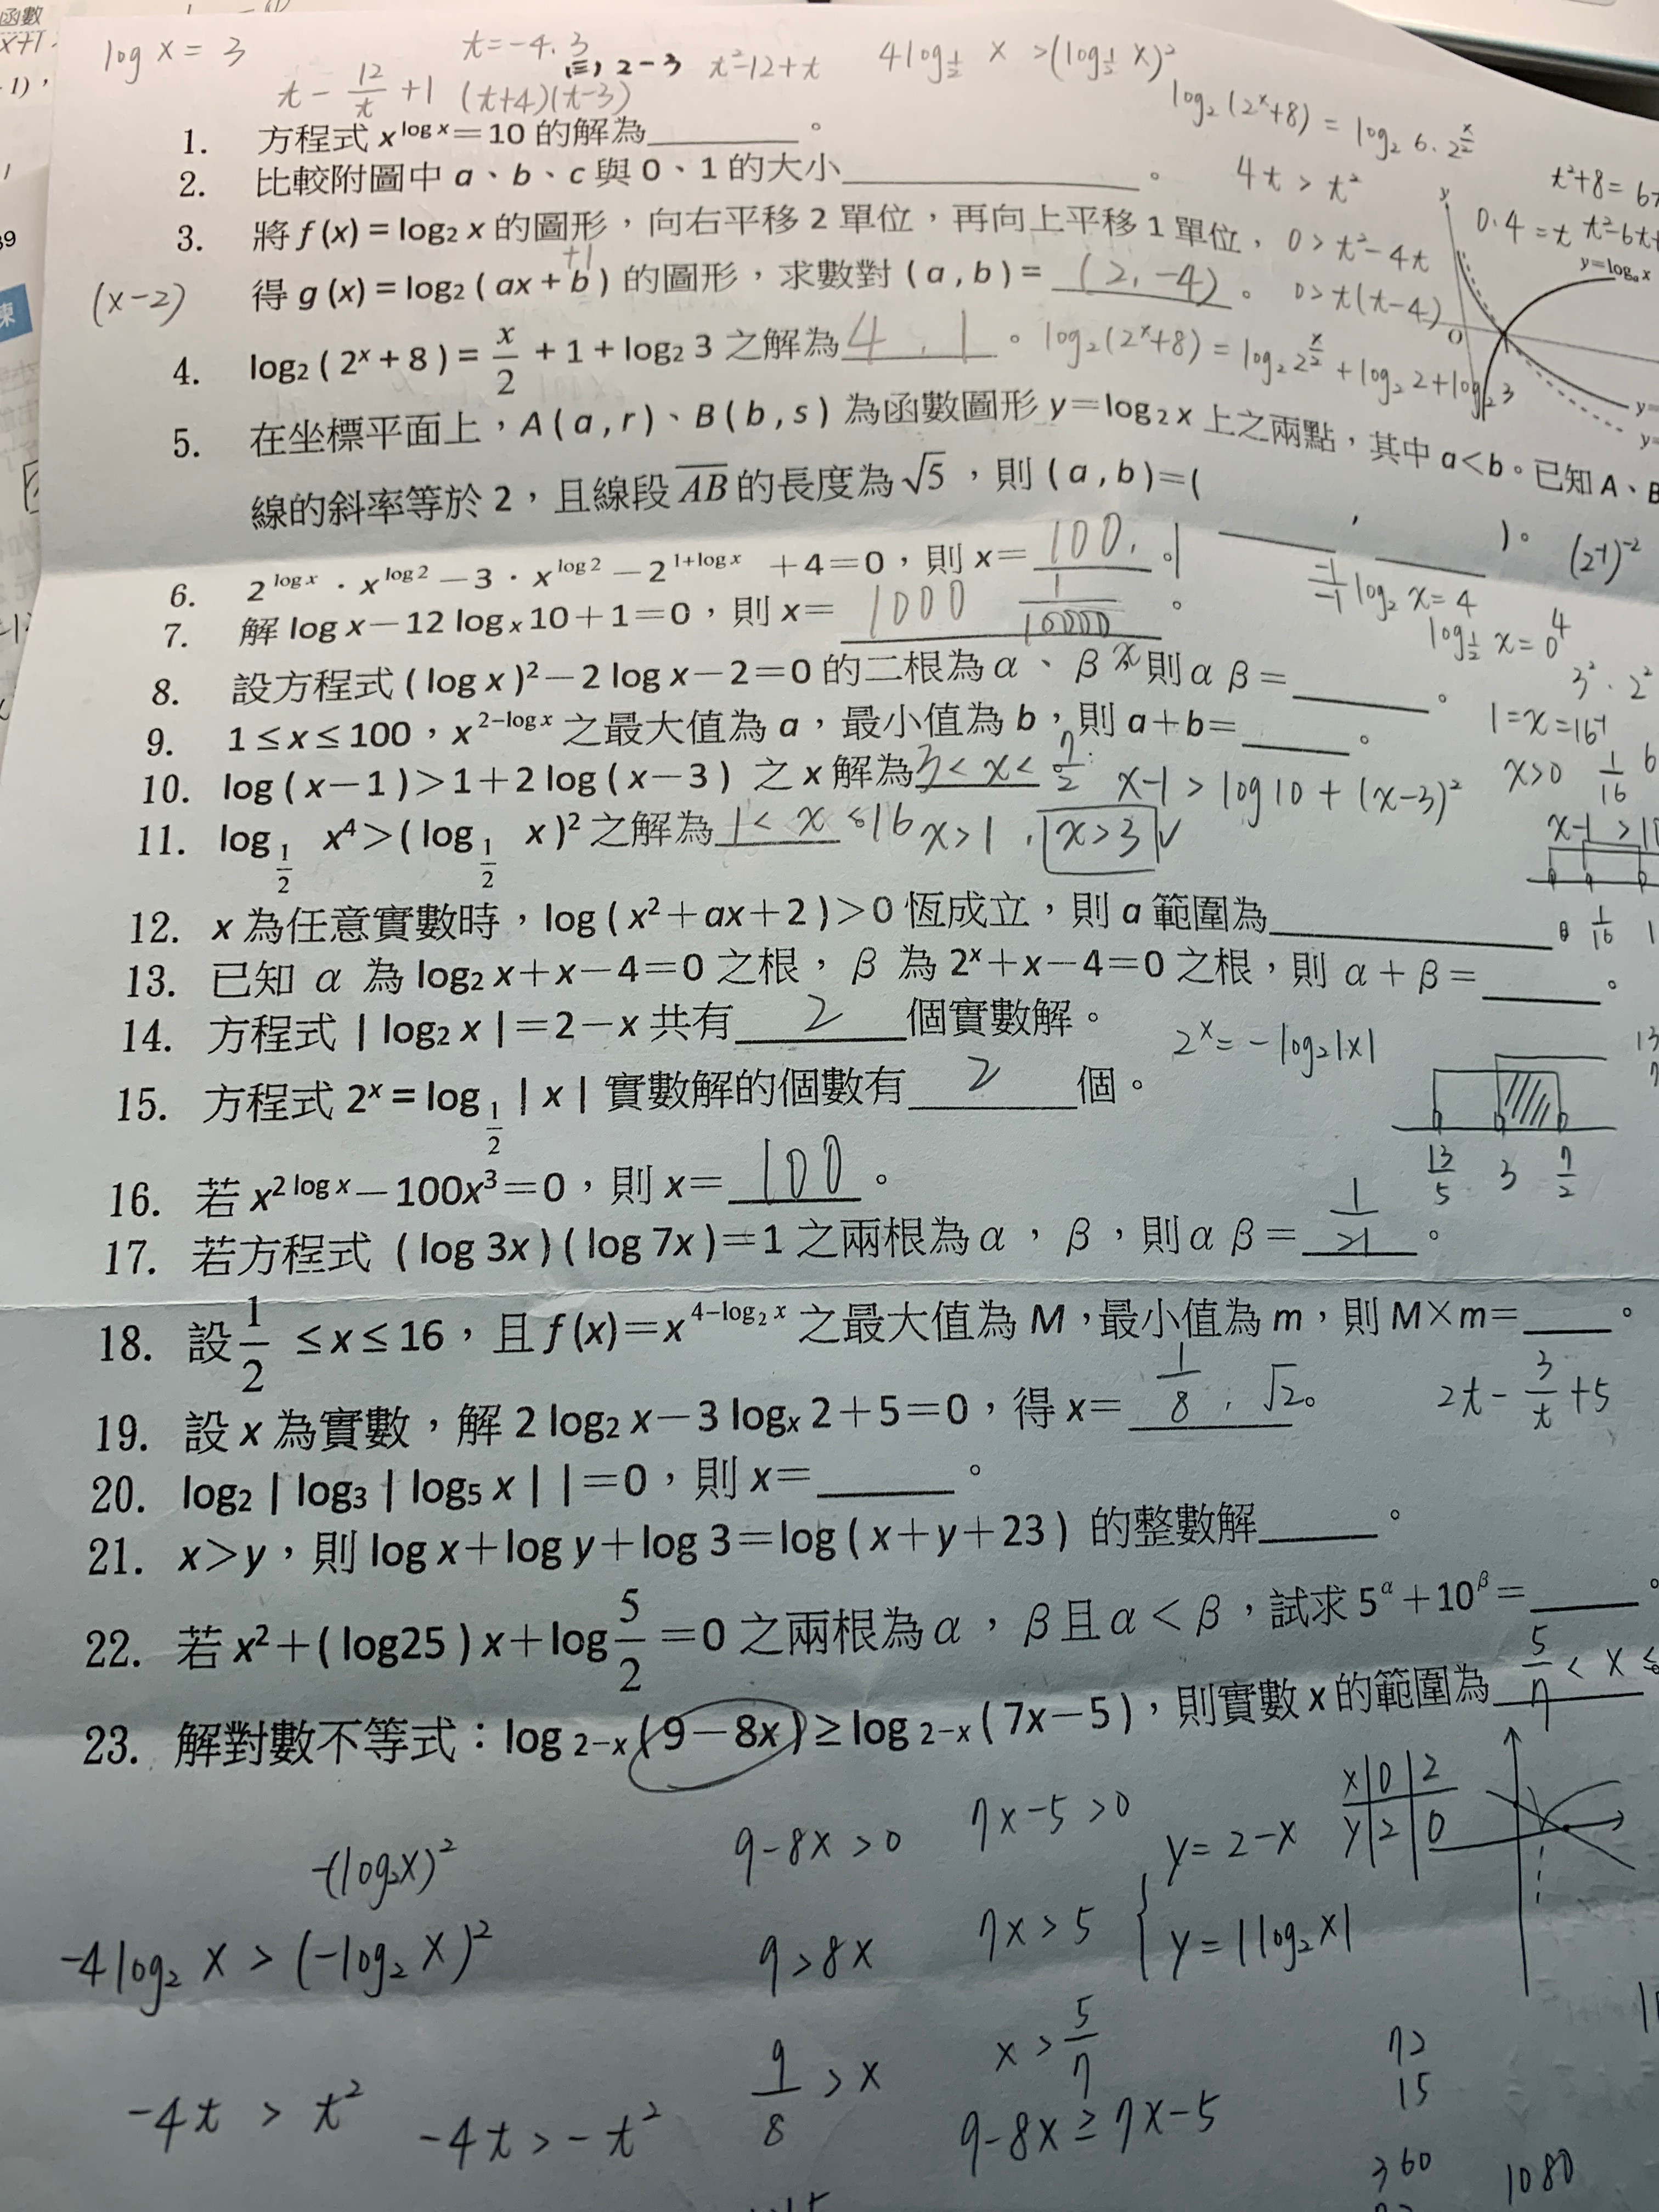 函數
x+1
-1),
39
log x = 3
t=-4.3
(三) 2-3
t²-12+t
4log_{1/2} x >(log_{1/2} x)²
t - 12/t +1
(t+4)(t-3)
log₂(2ˣ+8) = log₂ 6·2^{x/2}
1. 方程式 x^{log x}=10 的解為________。
2. 比較附圖中 a、b、c 與 0、1 的大小________________。
4t > t²
t²+8=6t
3. 將 f (x) = log₂ x 的圖形，向右平移 2 單位，再向上平移 1 單位，
0 > t²-4t
0.4 = t
y
y=logₐ x
+1
(x-2)
得 g (x) = log₂ ( ax + b ) 的圖形，求數對 ( a , b ) = (2, -4)。
0> t(t-4)
O
4. log₂ ( 2ˣ + 8 ) = x/2 + 1 + log₂ 3 之解為 4 , 1。
log₂(2ˣ+8) = log₂ 2^{x/2} + log₂ 2 + log₂ 3
y=
y=
5. 在坐標平面上，A ( a , r )、B ( b , s ) 為函數圖形 y=log₂ x 上之兩點，其中 a<b。已知 A、B
線的斜率等於 2，且線段 AB 的長度為 √5，則 ( a , b )=( ________ , ________ )。
(2⁻¹)⁻²
6. 2^{log x}．x^{log 2}－3．x^{log 2}－2^{1+log x} ＋4＝0，則 x＝ 100, 1。
-1/-1 log₂ x = 4
7. 解 log x－12 logₓ 10＋1＝0，則 x＝ 1000 1/10000。
log_{1/2} x = 0 4
8. 設方程式 ( log x )²－2 log x－2＝0 的二根為 α、β，則 α β＝________。
3²·2²
9. 1≤x≤100，x^{2-log x} 之最大值為 a，最小值為 b，則 a＋b＝______。
10. log ( x－1 )>1＋2 log ( x－3 ) 之 x 解為 3< x< 7/2
x-1 > log 10 + (x-3)²
x>0 1/16
11. log_{1/2} x⁴>( log_{1/2} x )² 之解為 1< x ≤16
x>1 , x>3 ✓
12. x 為任意實數時，log ( x²＋ax＋2 )>0 恆成立，則 a 範圍為________________。
1/16 1
13. 已知 α 為 log₂ x＋x－4＝0 之根，β 為 2ˣ＋x－4＝0 之根，則 α＋β＝________。
14. 方程式 | log₂ x |＝2－x 共有 2 個實數解。
2ˣ= -log₂|x|
15. 方程式 2ˣ = log_{1/2} | x | 實數解的個數有 2 個。
13/5 3 7/2
16. 若 x^{2 log x}－100x³＝0，則 x＝ 100。
17. 若方程式 ( log 3x ) ( log 7x )＝1 之兩根為 α，β，則 α β＝ 1/21。
18. 設 1/2 ≤x≤16，且 f (x)＝x^{4-log₂ x} 之最大值為 M，最小值為 m，則 M×m＝____。
19. 設 x 為實數，解 2 log₂ x－3 logₓ 2＋5＝0，得 x＝ 1/8 , √2。
2t - 3/t +5
20. log₂ | log₃ | log₅ x | |＝0，則 x＝______。
21. x>y，則 log x＋log y＋log 3＝log ( x＋y＋23 ) 的整數解______。
22. 若 x²＋( log25 ) x＋log 5/2 ＝0 之兩根為 α，β 且 α < β，試求 5^α＋10^β＝____。
23. 解對數不等式：log_{2-x} ( 9－8x )≥log_{2-x} ( 7x－5 )，則實數 x 的範圍為 5/7 < x ≤
-(log₂x)²
9-8x >0
7x-5 >0
y= 2-x
x 0 2
y 2 0
-4log₂ x > (-log₂ x)²
9>8x
7x > 5
y= |log₂ x|
9/8 > x
x > 5/7
72
15
-4t > t²
-4t > -t²
9-8x ≥ 7x-5
360
1080